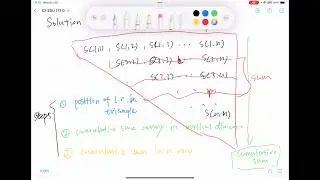 Solution
S(1,1), S(1,2), S(1,3) ... S(1,n)
S(2,2), S(2,3) ... S(2,n)
S(3,3) ... S(3,n)
sum
S(n,n)
steps
① position of l.r. in
triangle
② cumulative sum array in vertical direction
③ cumulative sum in a row
cumulative
sum